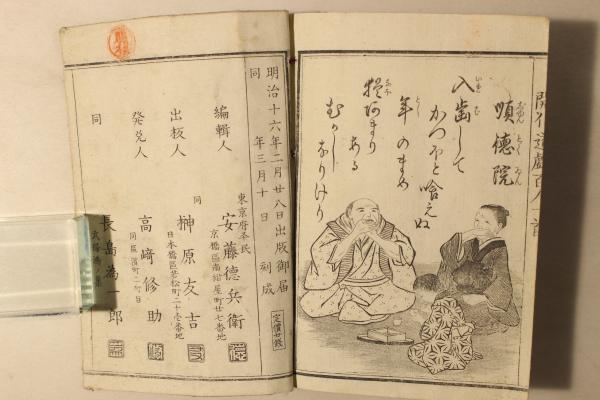 開化道戯百人一首
順徳院
じゆんとくゐん
入歯して
かつかつと喰えぬ
年のまめ
猶あまり
ある
むかし
なりけり
明治十六年二月廿八日出版御届
同 年三月十日 刻成
定價廿錢
編輯人
東京府平民
安藤德兵衛
京橋區南紺屋町廿七番地
出板人
同
榊原友吉
日本橋區若松町二十壱番地
発兌人
高崎修助
同
長島為一郎